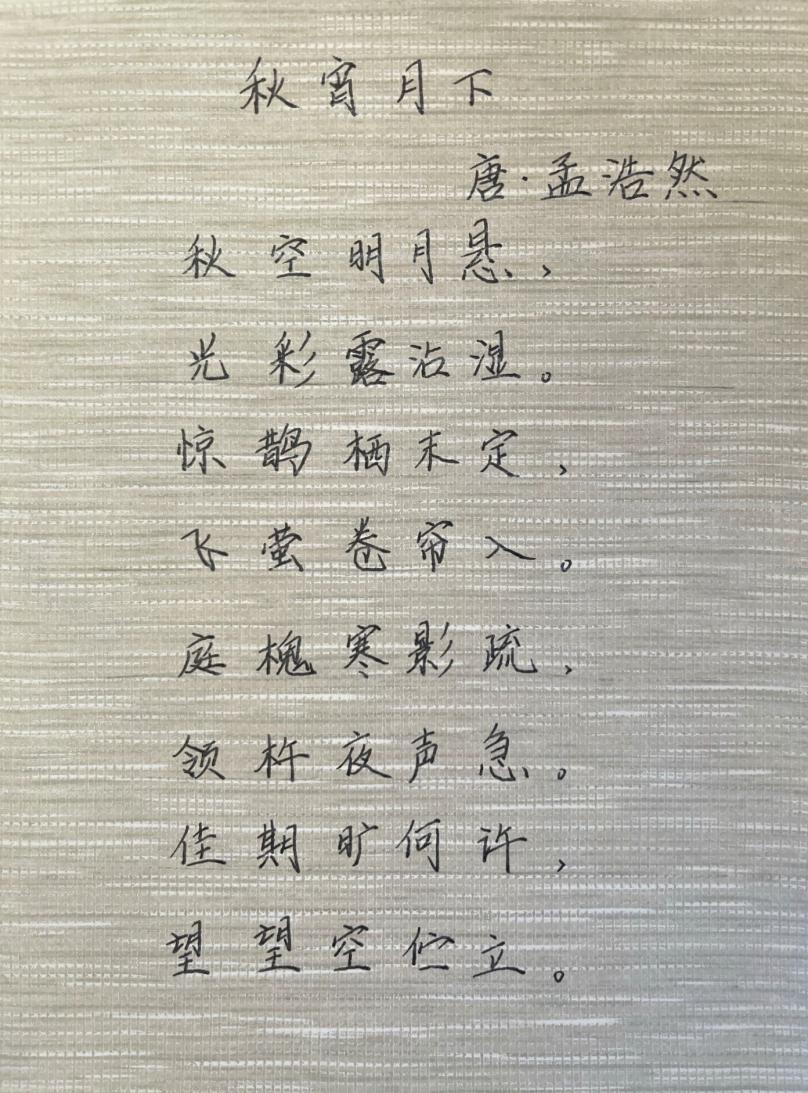 秋宵月下
唐·孟浩然
秋空明月悬，
光彩露沾湿。
惊鹊栖未定，
飞萤卷帘入。
庭槐寒影疏，
领杵夜声急。
佳期旷何许，
望望空伫立。